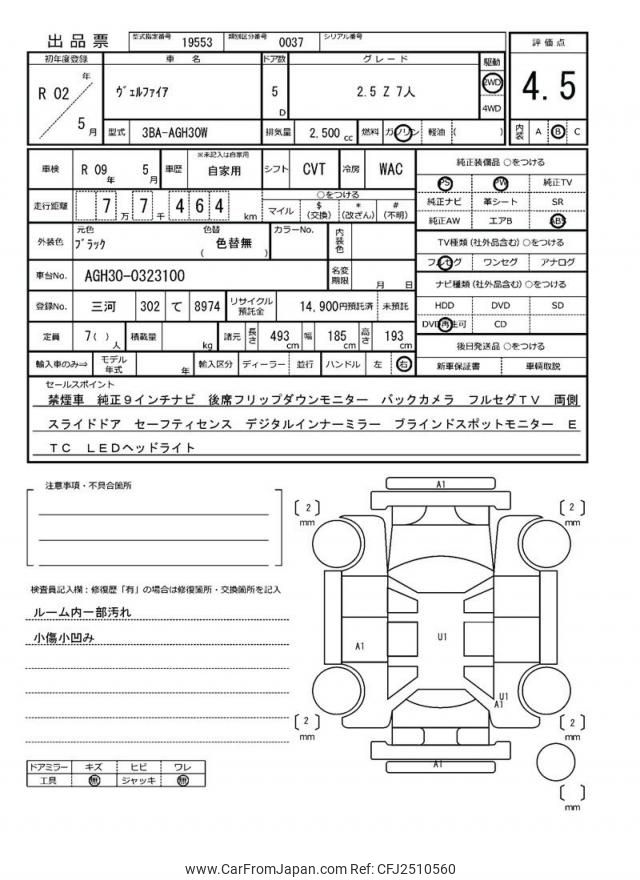 出品票 型式指定番号 19553 類別区分番号 0037 シリアル番号
初年度登録 車名 ドア数 グレード 駆動 評価点
R 02 年 5 月 ヴェルファイア 5 D 2.5 Z 7人 2WD 4WD 4.5
型式 3BA-AGH30W 排気量 2,500 cc 燃料 ガソリン 軽油 ( ) 内装 A B C
車検 R 09 年 5 月 車歴 ※未記入は自家用 自家用 シフト CVT 冷房 WAC
走行距離 7 万 7 千 4 6 4 km ○をつける マイル $ (交換) * (改ざん) # (不明)
外装色 元色 ブラック 色替 色替無 ( ) カラーNo. 内装色
車台No. AGH30-0323100 名変期限 月 日
登録No. 三河 302 て 8974 リサイクル預託金 14,900円預託済 未預託
定員 7( ) 人 積載量 kg 諸元 長さ 493 cm 幅 185 cm 高さ 193 cm
輸入車のみ⇒ モデル年式 年 輸入区分 ディーラー 並行 ハンドル 左 右
純正装備品 ○をつける
PS PW 純正TV
純正ナビ 革シート SR
純正AW エアB ABS
TV種類 (社外品含む) ○をつける
フルセグ ワンセグ アナログ
ナビ種類 (社外品含む) ○をつける
HDD DVD SD
DVD再生可 CD
後日発送品 ○をつける
新車保証書 車輌取説
セールスポイント
禁煙車 純正9インチナビ 後席フリップダウンモニター バックカメラ フルセグTV 両側
スライドドア セーフティセンス デジタルインナーミラー ブラインドスポットモニター E
TC LEDヘッドライト
注意事項・不具合箇所
検査員記入欄:修復歴「有」の場合は修復箇所・交換箇所を記入
ルーム内一部汚れ
小傷小凹み
ドアミラー キズ ヒビ ワレ
工具 無 ジャッキ 無
A1
2 mm
2 mm
A1
U1
U1
A1
2 mm
2 mm
A1
mm
www.CarFromJapan.com Ref: CFJ2510560